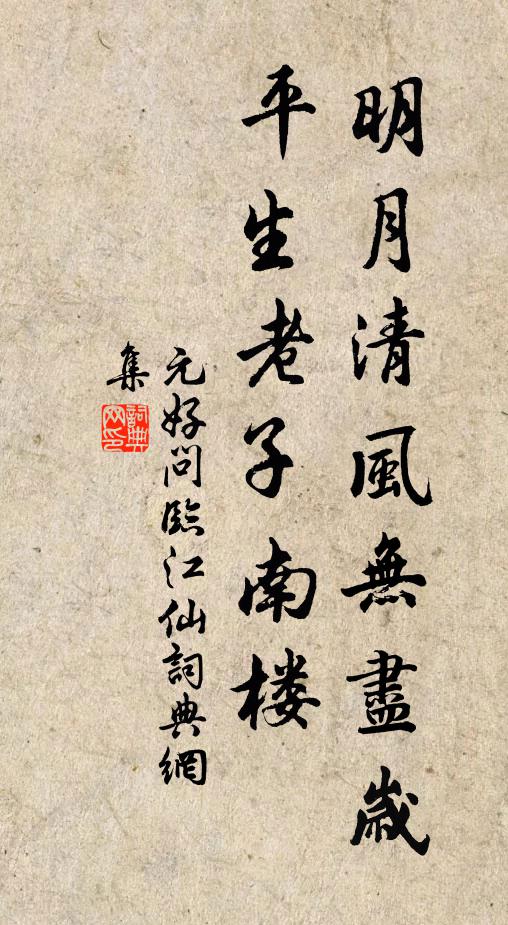 明月清風無盡歳
平生老子南楼
元好问臨江仙詞典網
集
詞典網印